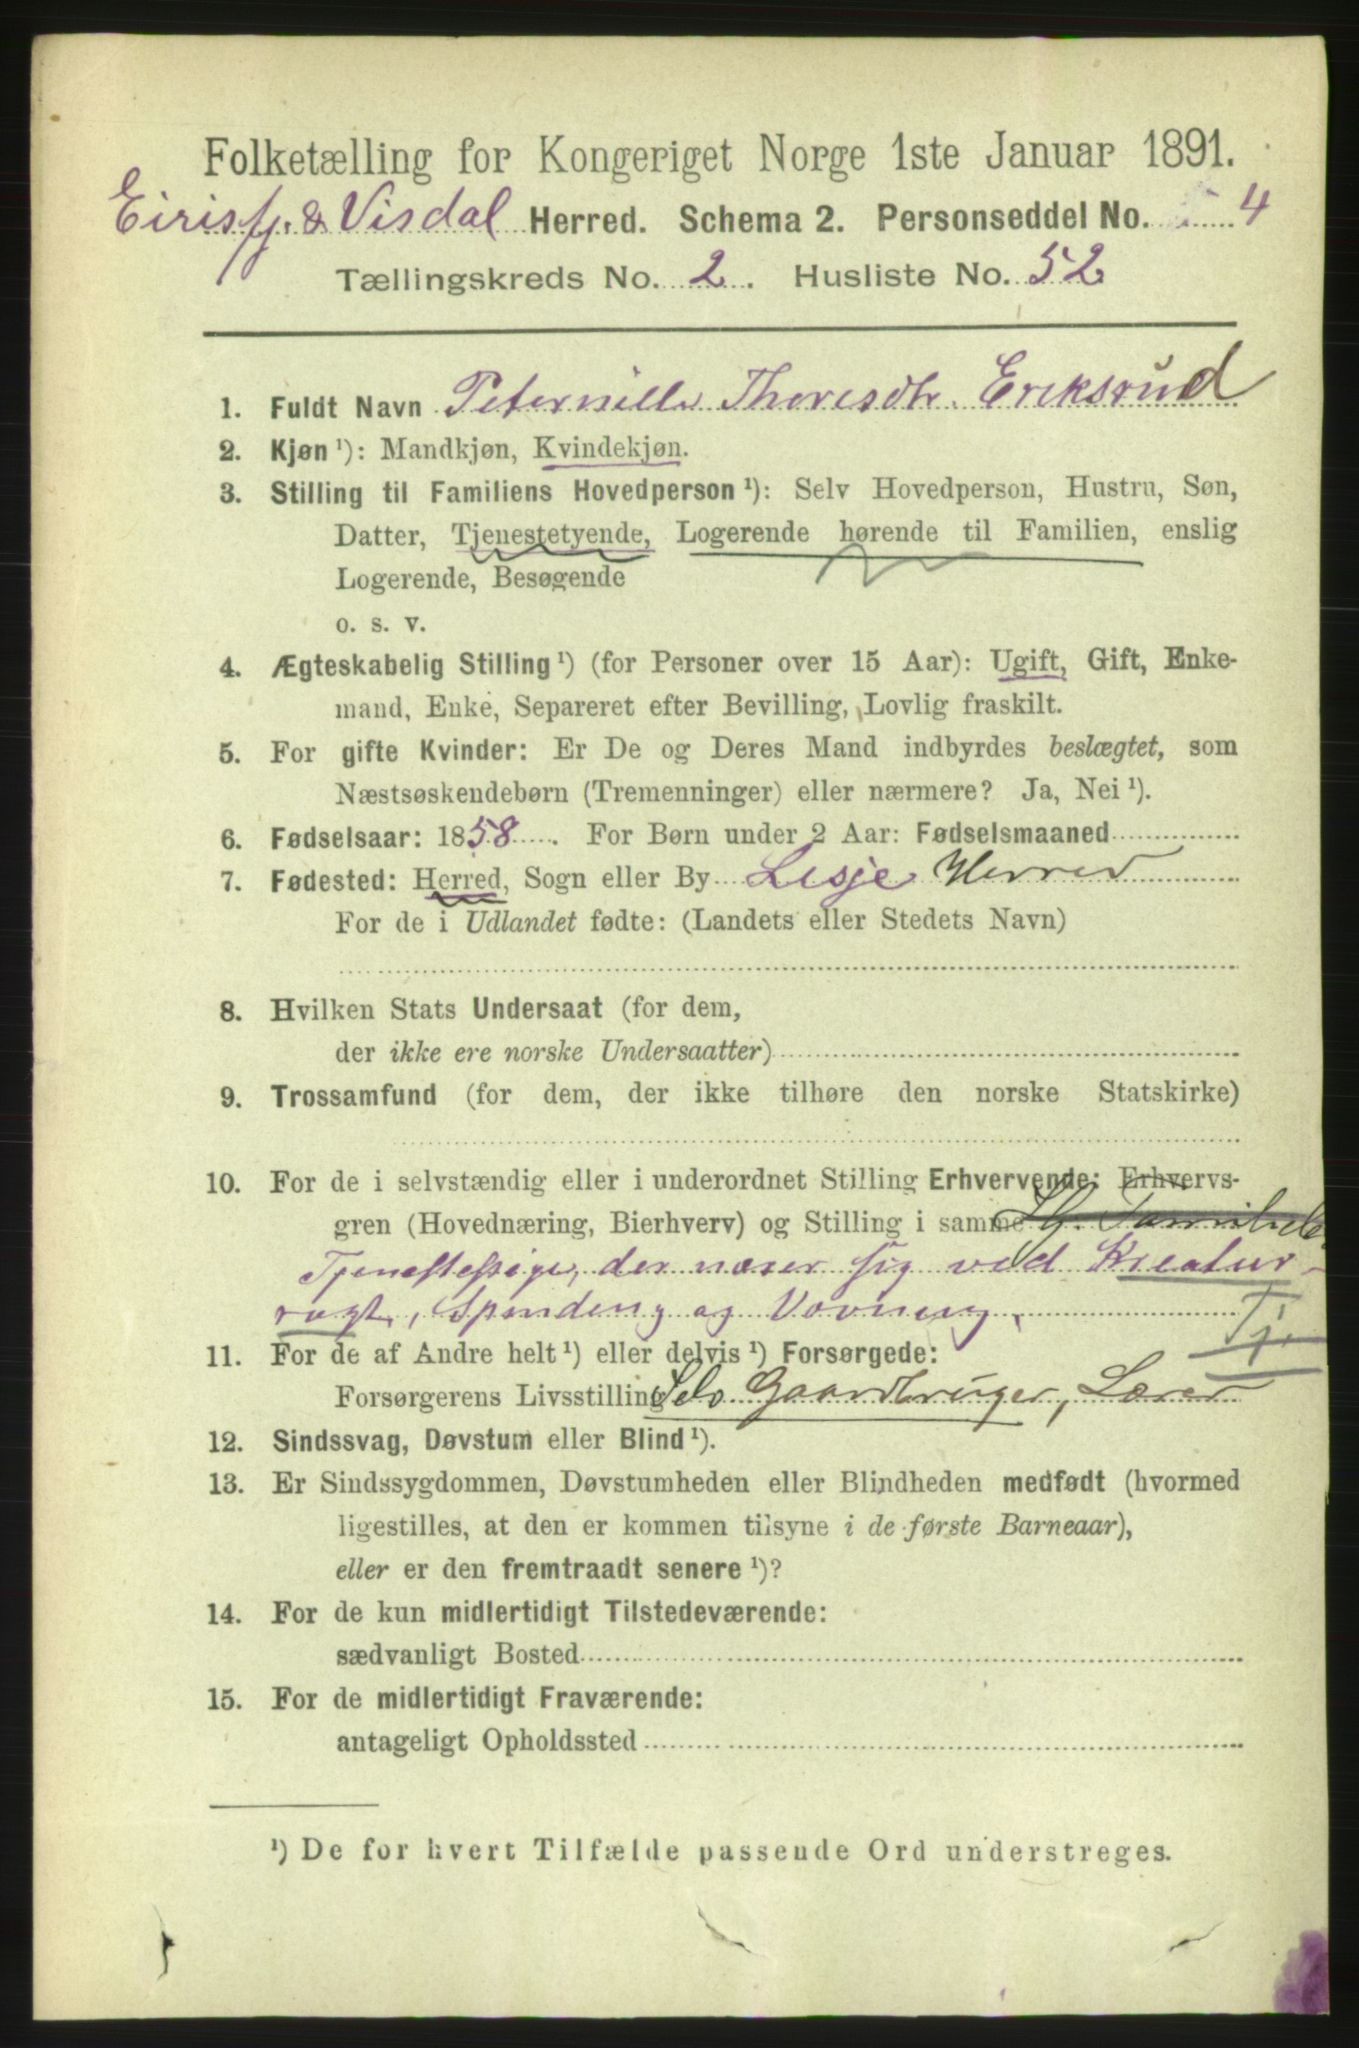 Folketælling for Kongeriget Norge 1ste Januar 1891.
Eirisfj. & Visdal Herred. Schema 2. Personseddel No. 4
Tællingskreds No. 2. Husliste No. 52
1. Fuldt Navn Peternille Thoresdtr. Eriksrud
2. Kjøn ¹): Mandkjøn, Kvindekjøn.
3. Stilling til Familiens Hovedperson ¹): Selv Hovedperson, Hustru, Søn,
Datter, Tjenestetyende, Logerende hørende til Familien, enslig
Logerende, Besøgende
o. s. v.
4. Ægteskabelig Stilling ¹) (for Personer over 15 Aar): Ugift, Gift, Enke-
mand, Enke, Separeret efter Bevilling, Lovlig fraskilt.
5. For gifte Kvinder: Er De og Deres Mand indbyrdes beslægtet, som
Næstsøskendebørn (Tremenninger) eller nærmere? Ja, Nei ¹).
6. Fødselsaar: 1858. For Børn under 2 Aar: Fødselsmaaned
7. Fødested: Herred, Sogn eller By Lesje Herred
For de i Udlandet fødte: (Landets eller Stedets Navn)
8. Hvilken Stats Undersaat (for dem,
der ikke ere norske Undersaatter)
9. Trossamfund (for dem, der ikke tilhøre den norske Statskirke)
10. For de i selvstændig eller i underordnet Stilling Erhvervende: Erhvervs-
gren (Hovednæring, Bierhverv) og Stilling i samme Lg. Familie
Tjenestepige, der nærer sig ved Kreatur-
røgt, Spinding og Vævning.
Tj.
11. For de af Andre helt ¹) eller delvis ¹) Forsørgede:
Forsørgerens Livsstilling Selv Gaardbruger, Lærer
12. Sindssvag, Døvstum eller Blind ¹).
13. Er Sindssygdommen, Døvstumheden eller Blindheden medfødt (hvormed
ligestilles, at den er kommen tilsyne i de første Barneaar),
eller er den fremtraadt senere ¹)?
14. For de kun midlertidigt Tilstedeværende:
sædvanligt Bosted
15. For de midlertidigt Fraværende:
antageligt Opholdssted
¹) De for hvert Tilfælde passende Ord understreges.